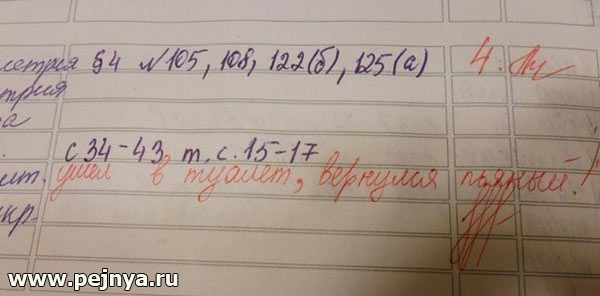 метрия §4 №105, 108, 122(б), 125(а) 4.
трия
а
с 34-43, т, с. 15-17
ушел в туалет, вернулся пьяный!
www.pejnya.ru